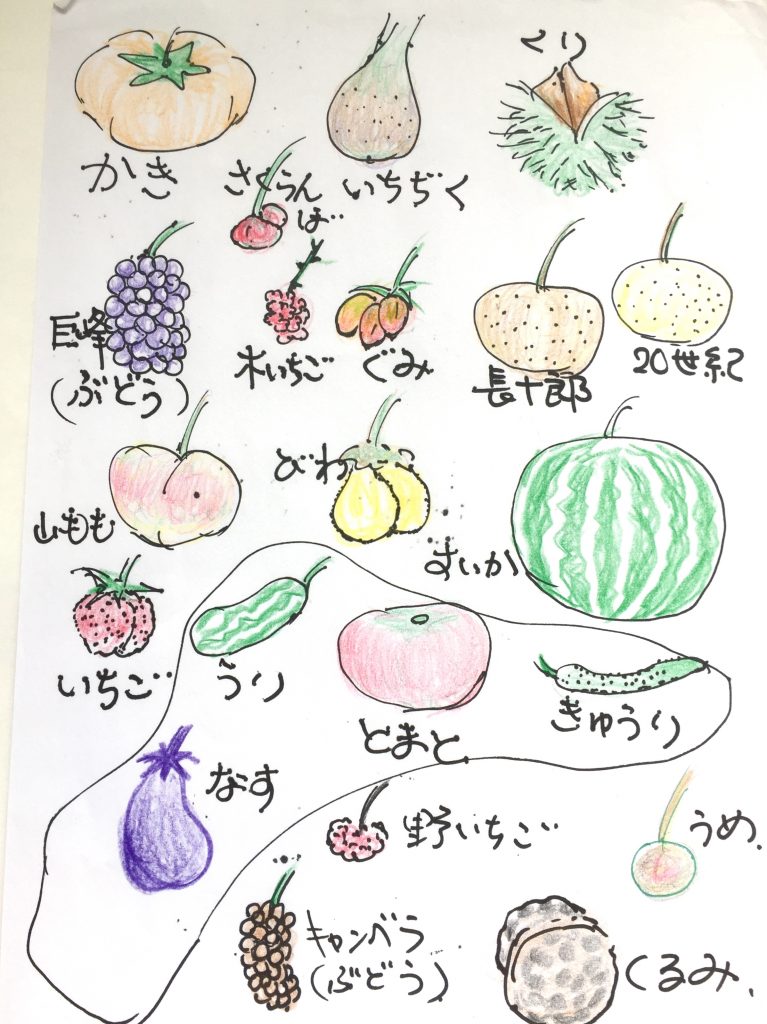 くり
かき
さくらん
ぼ
いちぢく
巨峰
(ぶどう)
木いちご
ぐみ
長十郎
20世紀
山もも
びわ
すいか
いちご
うり
とまと
きゅうり
なす
野いちご
うめ.
キャンベラ
(ぶどう)
くるみ.